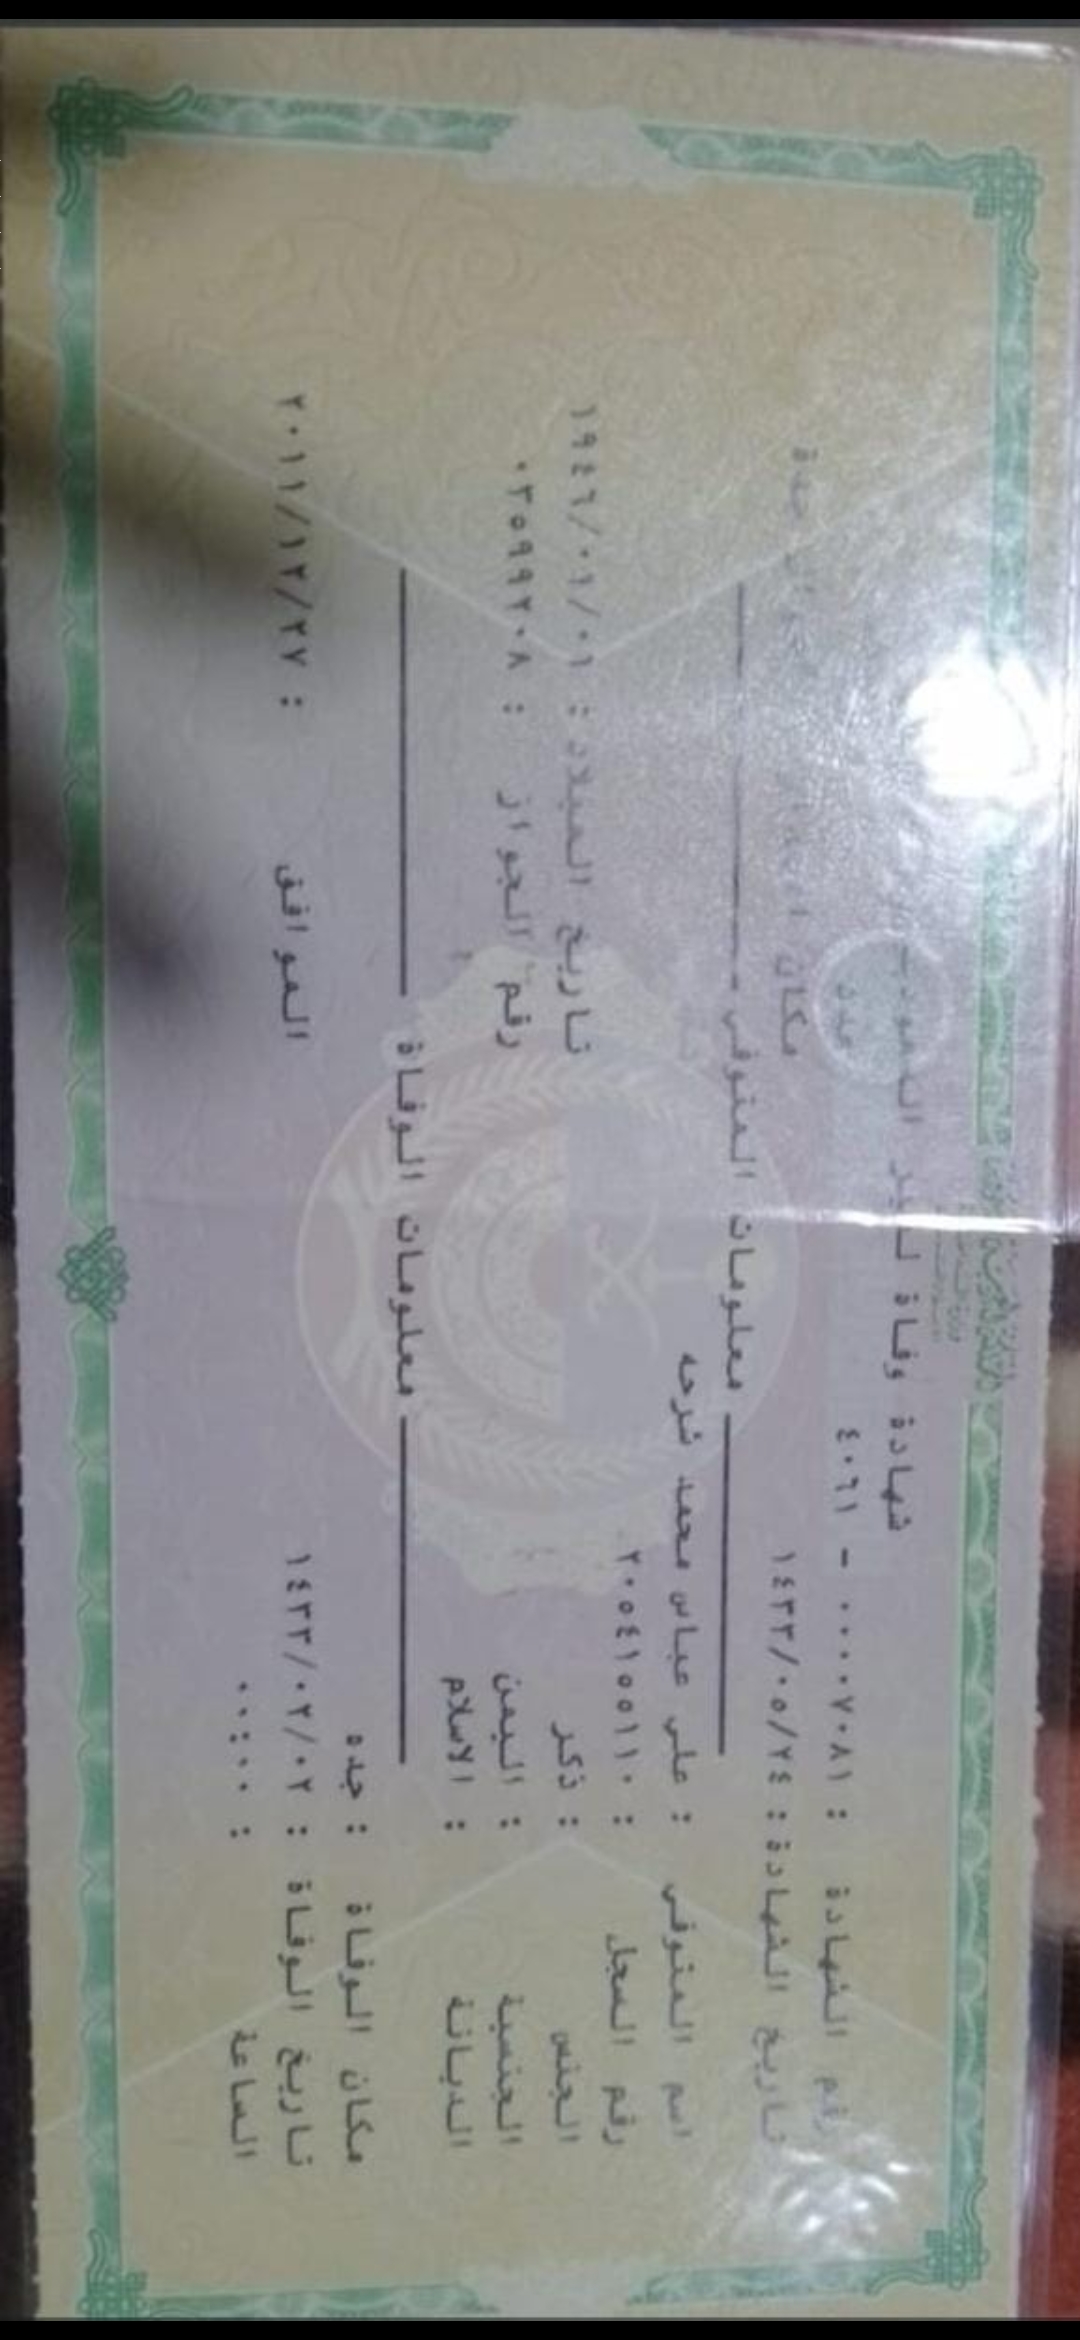 المملكة العربية السعودية
شهادة وفاة لغير السعوديين
رقم الشهادة : ٠٠٠٠٧٠٨١ - ٤٠٦١
تاريخ الشهادة : ١٤٣٣/٠٥/٢٤ مكان جدة
معلومات المتوفى
اسم المتوفى : علي عباس محمد شرحه
رقم السجل : ٢٠٥٤١٥٥١١٠
الجنس : ذكر تاريخ الميلاد : ١٩٤٦/٠١/٠١
الجنسية : اليمن رقم الجواز : ٠٣٥٩٩٢٠٨
الديانة : الاسلام
معلومات الوفاة
مكان الوفاة : جده
تاريخ الوفاة : ١٤٣٣/٠٢/٠٢ الموافق : ٢٠١١/١٢/٢٧
الساعة : ٠٠:٠٠